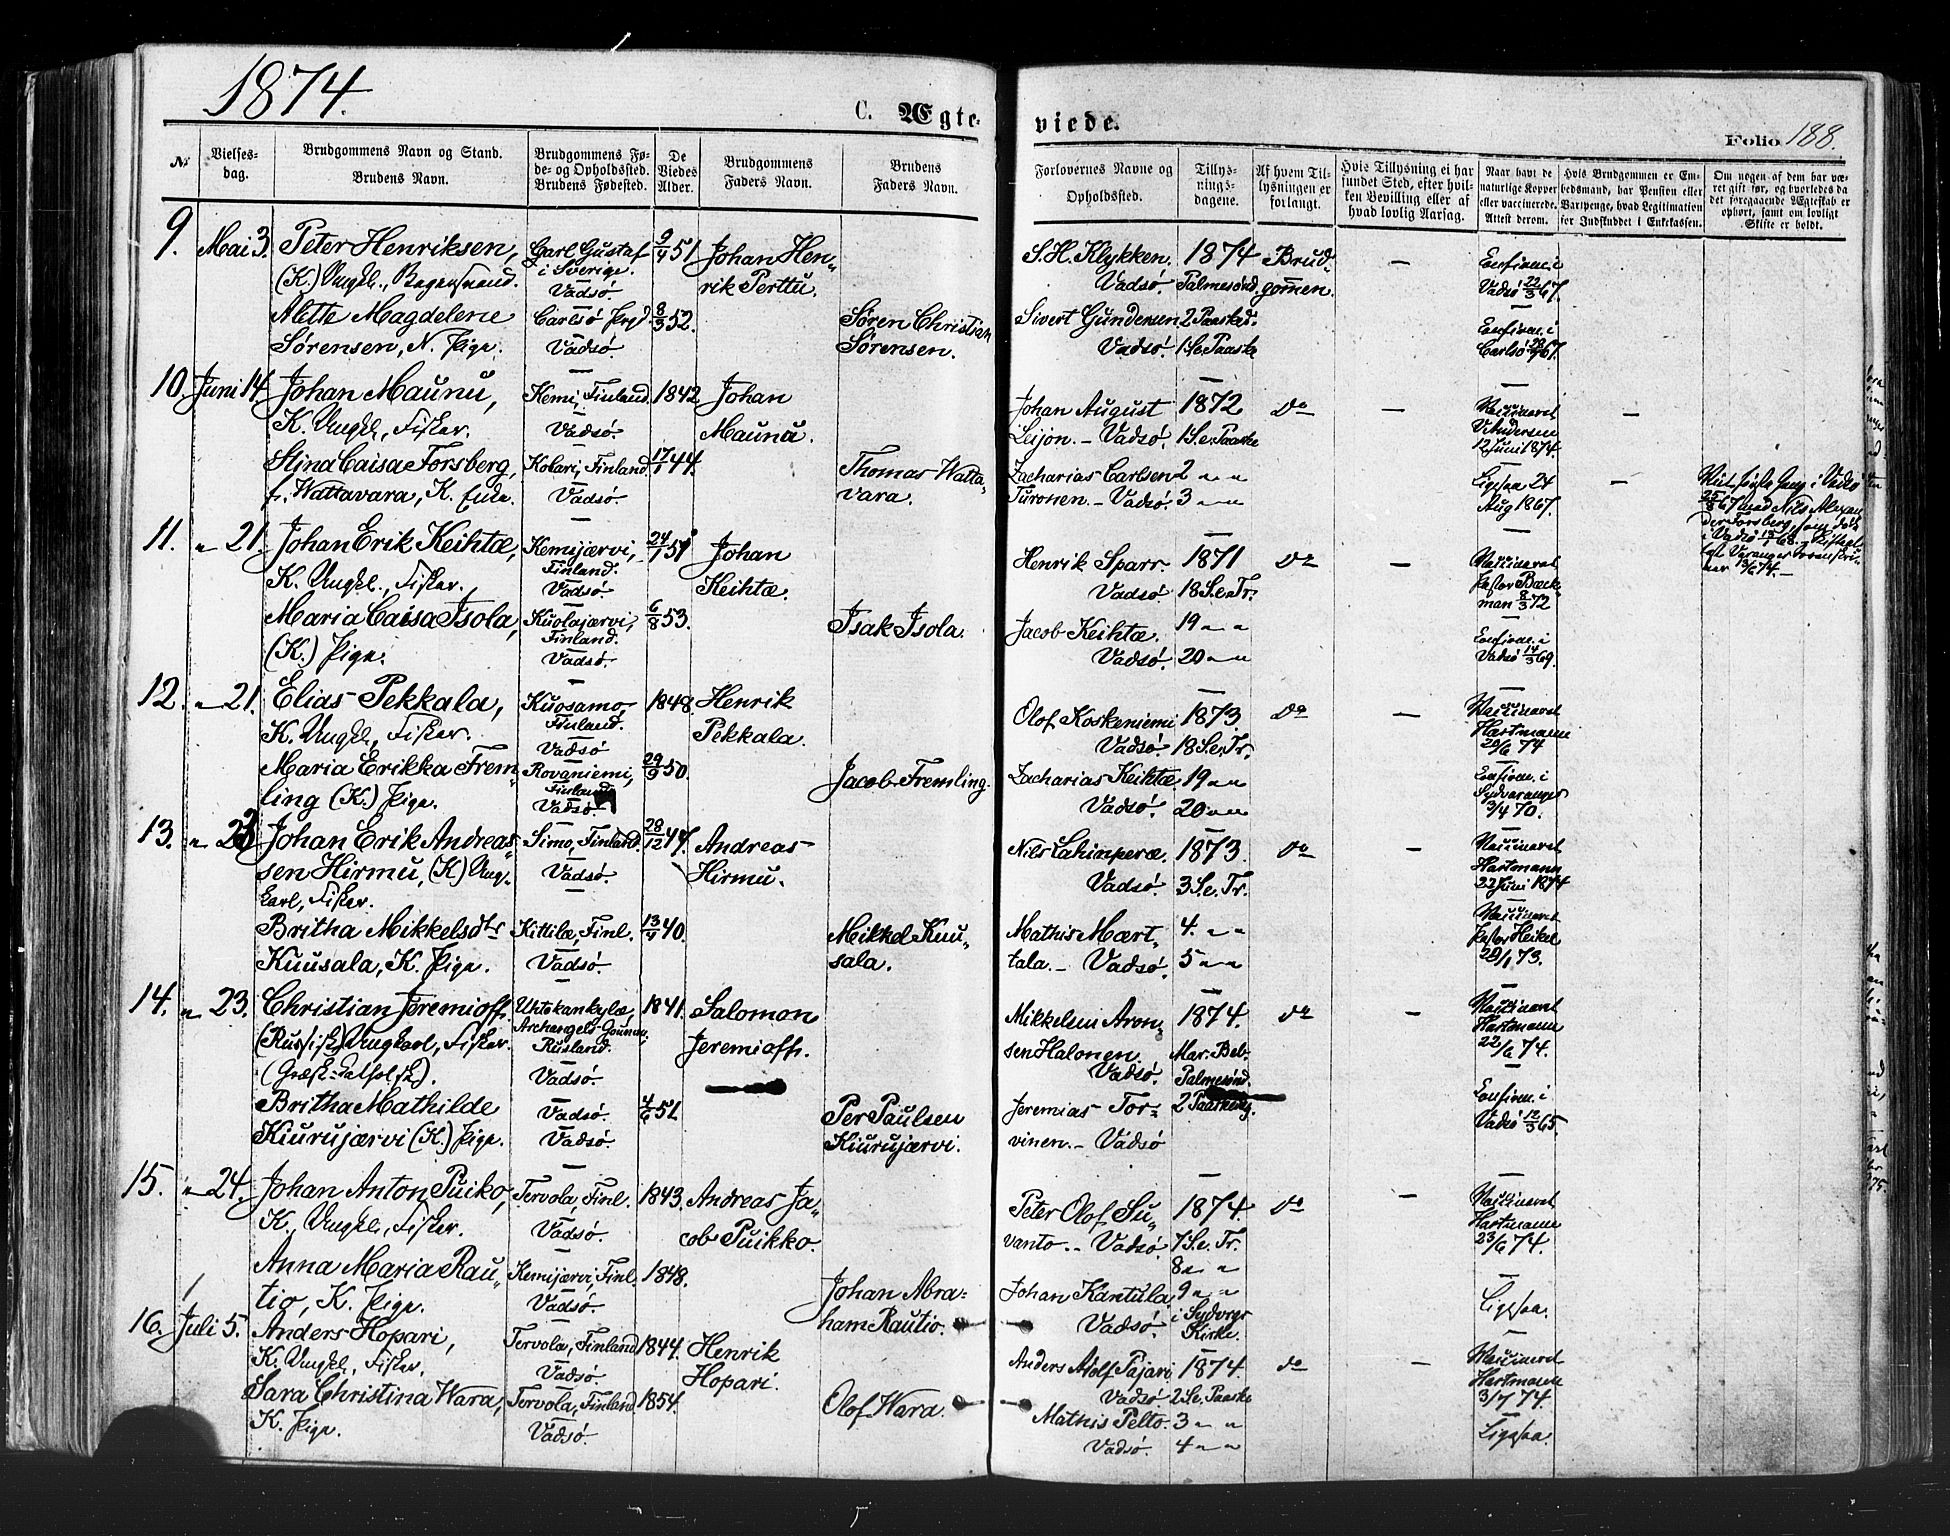 1874.
C. Ægteviede.
Folio 188.
No
Vielsesdag.
Brudgommens Navn og Stand.
Brudens Navn.
Brudgommens Føde- og Opholdssted.
Brudens Fødested.
De Viedes Alder.
Brudgommens Faders Navn.
Brudens Faders Navn.
Forlovernes Navne og Opholdssted.
Tillysningsdagene.
Af hvem Tillysningen er forlangt.
Hvis Tillysning ei har fundet Sted, efter hvilken Bevilling eller af hvad lovlig Aarsag.
Naar havt de naturlige Kopper eller vaccinerede. Attest derom.
Hvis Brudgommen er Embedsmand, har Pension eller Vartpenge, hvad Legitimation for Indskuddet i Enkekassen.
Om nogen af dem har været gift før, og hvorledes da det foregaaende Ægteskab er ophørt, samt om lovligt Skifte er holdt.
9. Mai 3. Peter Henriksen, Carl Gustaf 9/4 51 Johan Hen-
(K.) Ungk., i Sverige. rik Perttu.
Vadsø.
Mette Magdelene Carlsø 8/3 52. Søren Christian
Sørensen, N. Pige. Vadsø. Sørensen.
S. H. Klykken. 1874 Brud- — Confirm. i
Vadsø. Palmesønd. gommen. Vadsø 22/3 67.
Sivert Gundersen 2 Paasked. Confirm. i
Vadsø. 1 S. e. Paaske Carlsø 67.
10. Juni 14. Johan Maunu, Kemi, Finland. 1842. Johan
K. Ungk., Fisker. Vadsø. Maunu.
Stina Caisa Forsberg, Kolari, Finland. 17/1 44. Thomas Watta-
f. Wattavara, K. Enke. Vadsø. vara.
Johan August 1872 Do — Vaccineret
Leijon. – Vadsø. 1 S. e. Paaske V. Andersen
12 Juni 1874
Zacharias Carlsen 2 " " Ligesaa 24
Turonen. – Vadsø. 3 " " Aug 1867.
11. " 21. Johan Erik Keihtæ, Kemijærvi, 24/1 51 Johan
K. Ungk., Fisker. Finland. Vadsø. Keihtæ.
Maria Caisa Isola, Kuolajærvi, 6/8 53. Isak Isola.
(K.) Pige. Finland. Vadsø.
Henrik Sparr. 1871 Do — Vaccineret
Vadsø. 18 S. e. Tr. Pastor Bæck-
man 8/3 72
Jacob Keihtæ. 19 " " Confirm. i
Vadsø. 20 " " Vadsø 14/3 69.
12. " 21. Elias Pekkala, Kuosamo, 1848. Henrik
K. Ungk., Fisker. Finland. Vadsø Pekkala.
Maria Erikka Frem- Rovaniemi, 29/9 50. Jacob Fremling.
ling (K.) Pige. Finland Vadsø.
Olof Koskeniemi 1873. Do — Vaccineret
Vadsø. 18 S. e. Tr. Hartmann
20/6 74
Zacharias Keihtæ 19 " " Confirm. i
Vadsø. 20 " " Sydvaranger
3/4 70.
13. " 23 Johan Erik Andreas- Simo, Finland. 28/12 47. Andreas
sen Hirmu, (K) Ung- Vadsø. Hirmu.
karl, Fisker.
Britha Mikkelsdtr Kittilæ, Finl. 13/4 40. Mikkel Kuu-
Kuusala, K. Pige. Vadsø. sala.
Nils Lahinperæ. 1873. Do — Vaccineret
Vadsø. 3 S. e. Tr. Hartmann
22 Juni 1874
Mathis Mært- 4. " " Vaccineret
tala. – Vadsø. 5 " " Pastor Heikel
29/1 73.
14. " 23. Christian Jeremioff. Uhtokankylæ, 1841. Salomon
(Russisk) Ungkarl, Fisker. Archangels Gouvn. Jeremioff.
(Græsk-Katholsk). Rusland. Vadsø.
Britha Mathilde Vadsø. 4/6 51. Per Paulsen
Kiurujærvi (K.) Pige. Vadsø. Kiurujærvi.
Mikkelsen Aron- 1874. Do — Vaccineret
sen Halonen. Mar. Beb. Hartmann
Vadsø. Palmesønd. 22/6 74.
Jeremias Tor- 2 Paaskedg. Confirm. i
vinen. – Vadsø Vadsø 12/3 65.
15. " 24. Johan Anton Puiko, Tervola, Finl. 1843. Andreas Ja-
K. Ungk., Fisker. Vadsø. cob Puikko.
Anna Maria Rau- Kemijærvi, Finl. 1848. Johan Abra-
tio, K. Pige. Vadsø. ham Rautio.
Peter Olof Su- 1874. Do — Vaccineret
vanto. – Vadsø. 7 S. e. Tr. Hartmann
8 " " 23/6 74.
Johan Kantula, 9 " " Ligesaa.
Vadsø. i Sydvrgr Kirke.
16. Juli 5. Anders Hopari, Tervola, Finland 1844. Henrik
K. Ungk., Fisker. Vadsø. Hopari.
Sara Christina Wara, Tervola, Finland 1854. Olof Wara.
K. Pige. Vadsø.
Anders Adolf Pajari 1874. do — Vaccineret
Vadsø. 2 S. e. Paaske Hartmann
3/7 74.
Mathis Pelto. 3 " " Ligesaa.
Vadsø. 4 " "